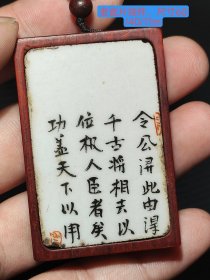 令公淂此由淂
千古将相夫以
位极人臣者矣
功盖天下以用